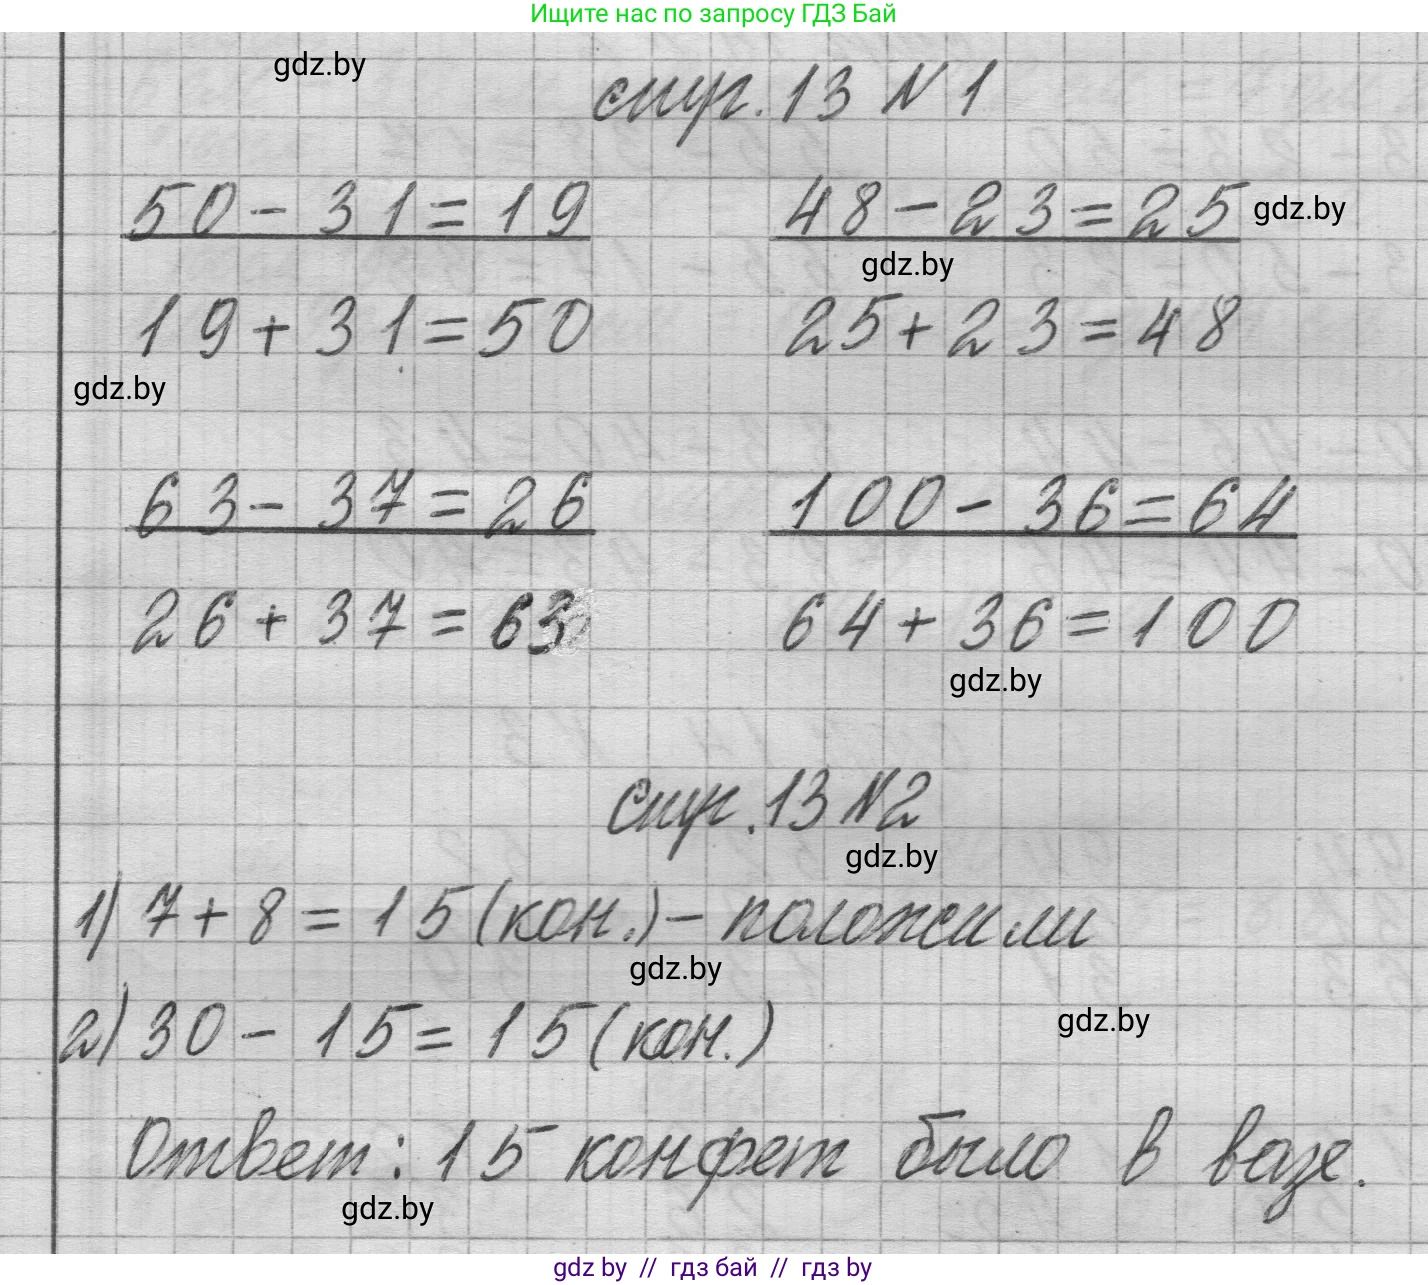 Ищите нас по запросу ГДЗ Бай
gdz.by
стр. 13 № 1
50 - 31 = 19 48 - 23 = 25 gdz.by
gdz.by
19 + 31 = 50 25 + 23 = 48
gdz.by
63 - 37 = 26 100 - 36 = 64
26 + 37 = 63 64 + 36 = 100
gdz.by
стр. 13 № 2
gdz.by
1) 7 + 8 = 15 (кон.) - положили
gdz.by
2) 30 - 15 = 15 (кон.)
gdz.by
Ответ: 15 конфет было в вазе.
gdz.by
gdz by // гдз бай // гдз by